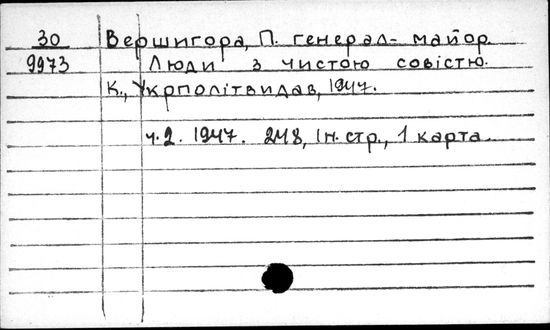 30 Вершигора, П. генерал-майор
9973 Люди з чистою совістю.
К., Укрполітвидав, 1947.
ч.2. 1947. 248, Ін. стр., 1 карта